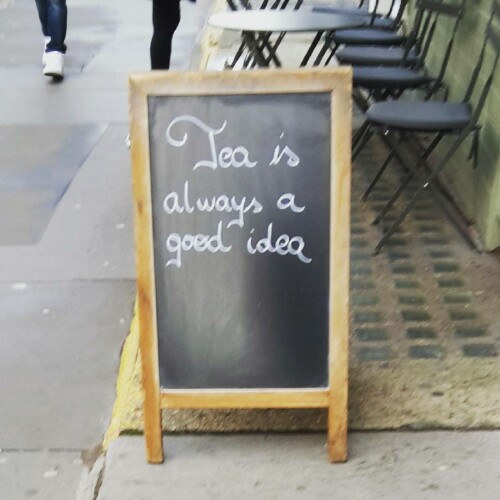 Tea is
always a
good idea